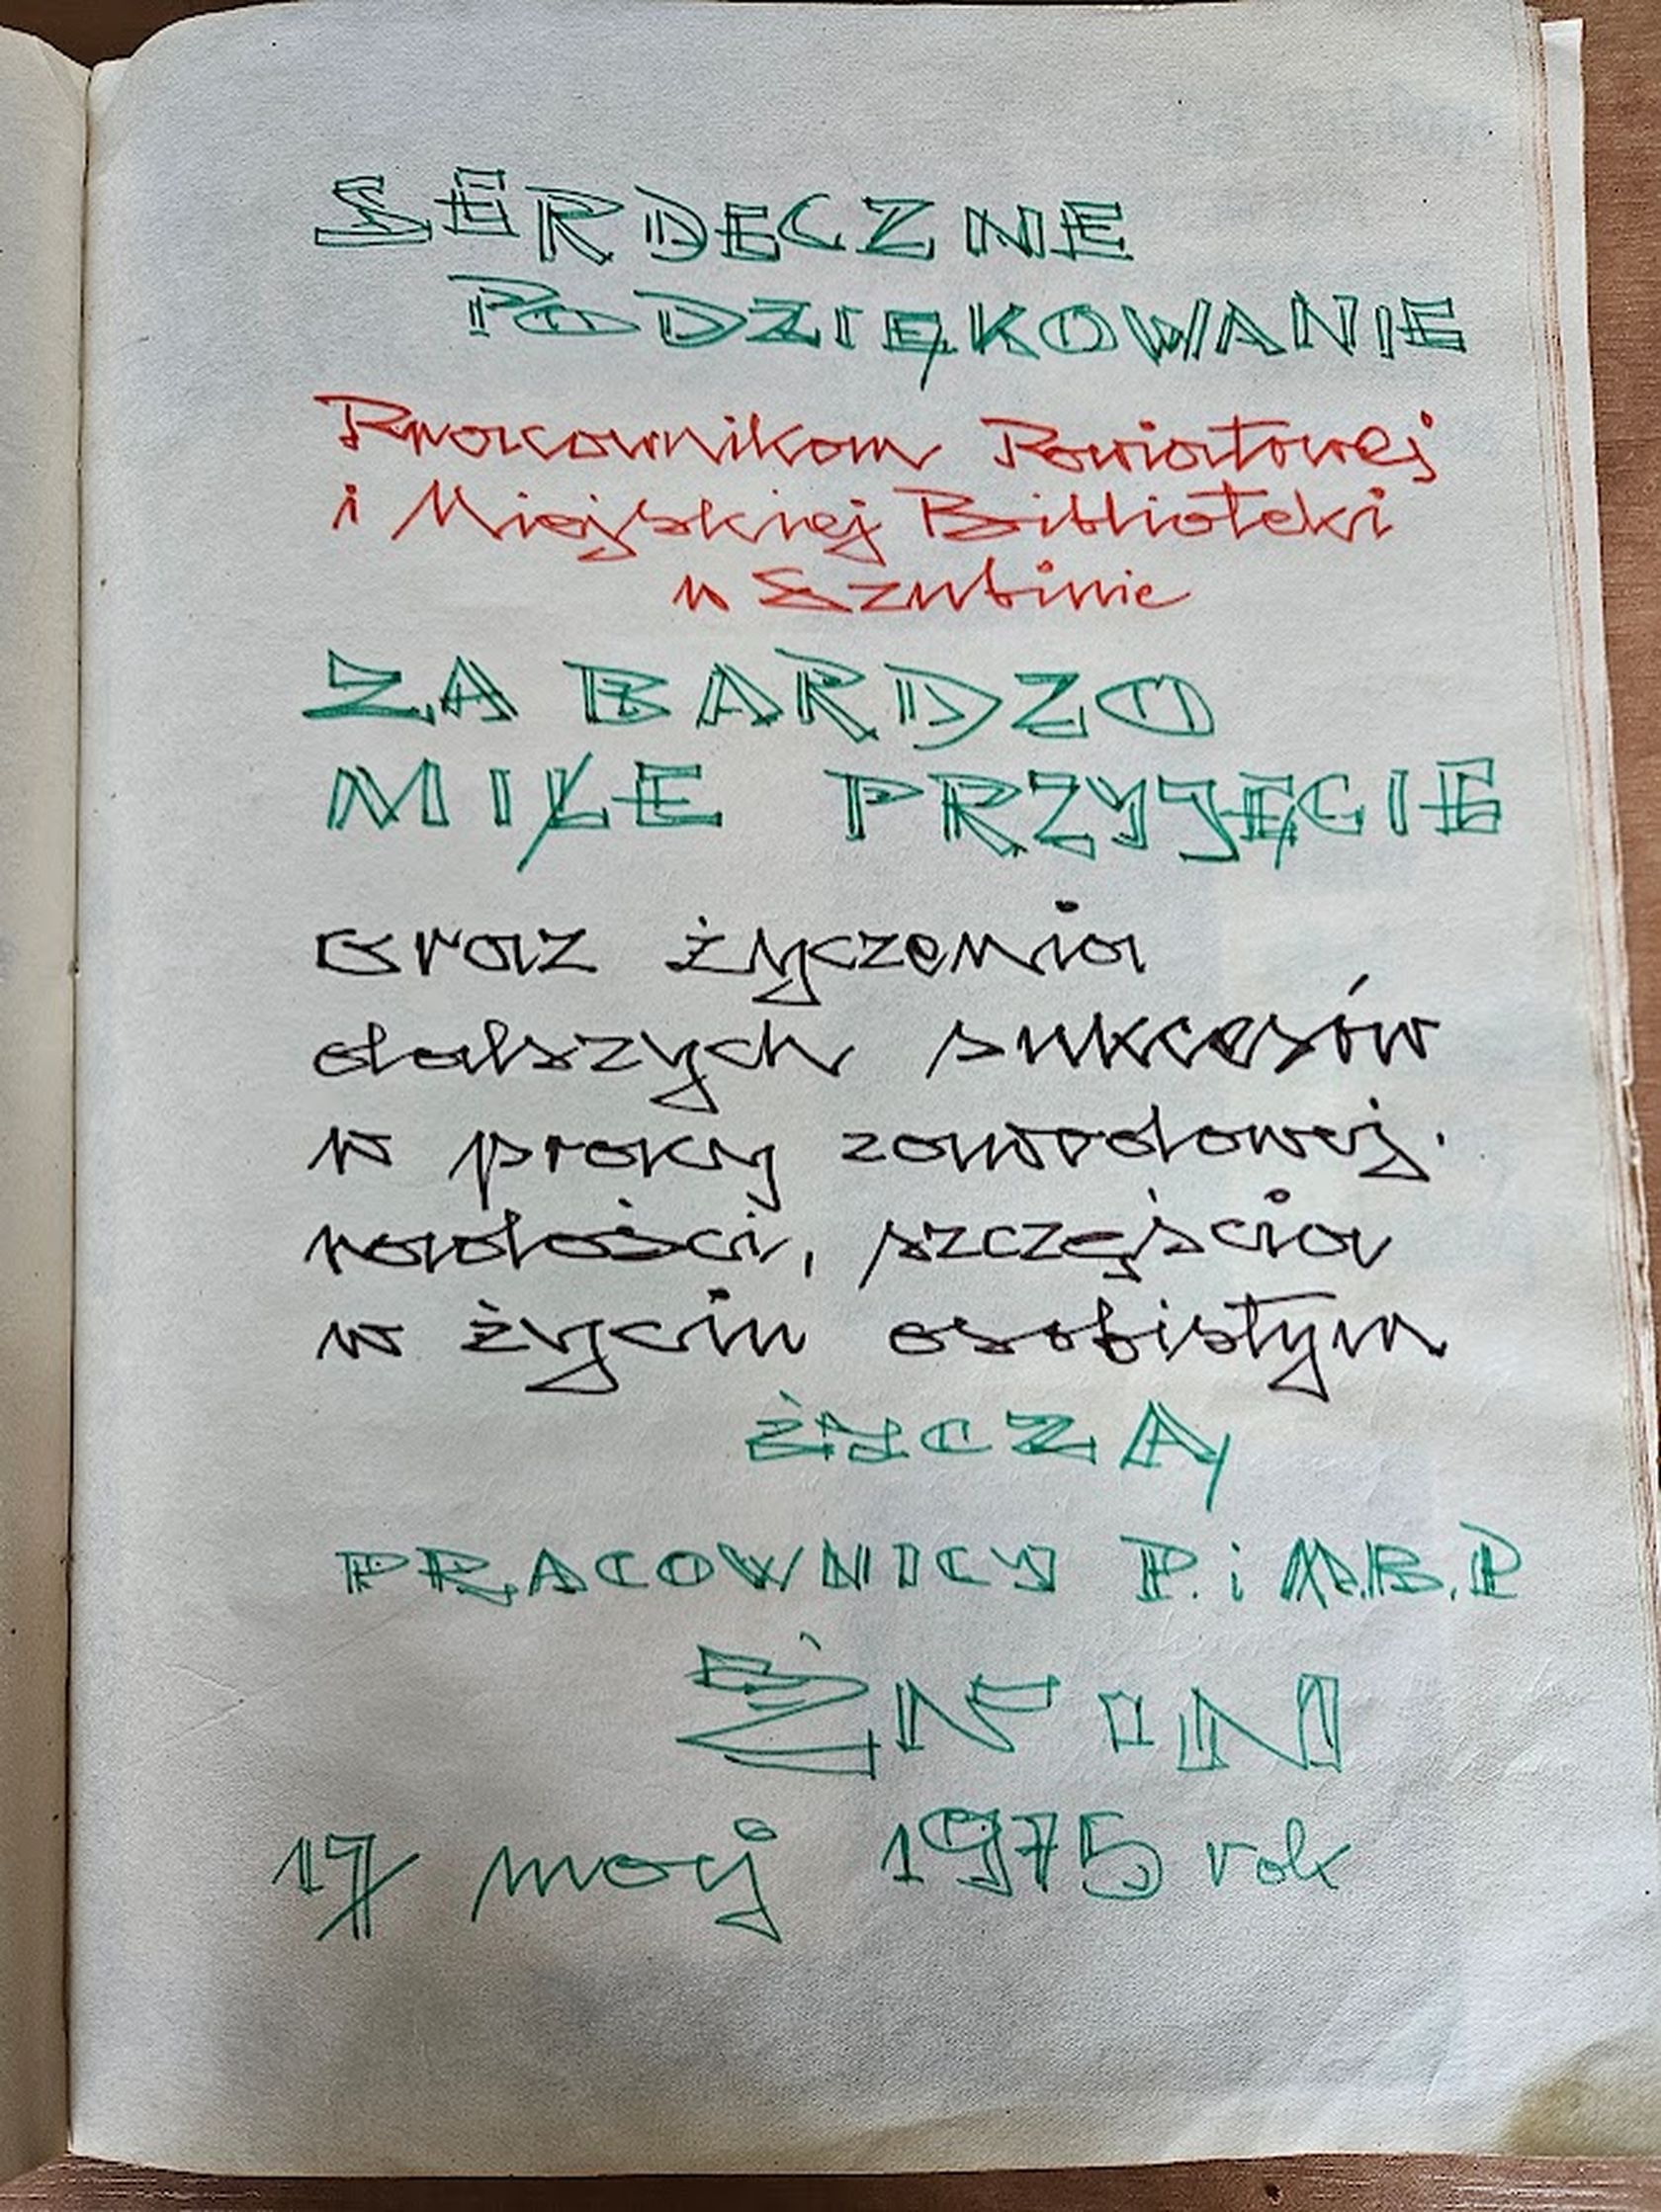 SERDECZNE
PODZIĘKOWANIE
Pracownikom Powiatowej
i Miejskiej Biblioteki
w Szubinie
ZA BARDZO
MIŁE PRZYJĘCIE
oraz życzenia
dalszych sukcesów
w pracy zawodowej.
radości, szczęścia
w życiu osobistym
ŻYCZĄ
PRACOWNICY P. i M.B.P
ŻNIN
17 maj 1975 rok